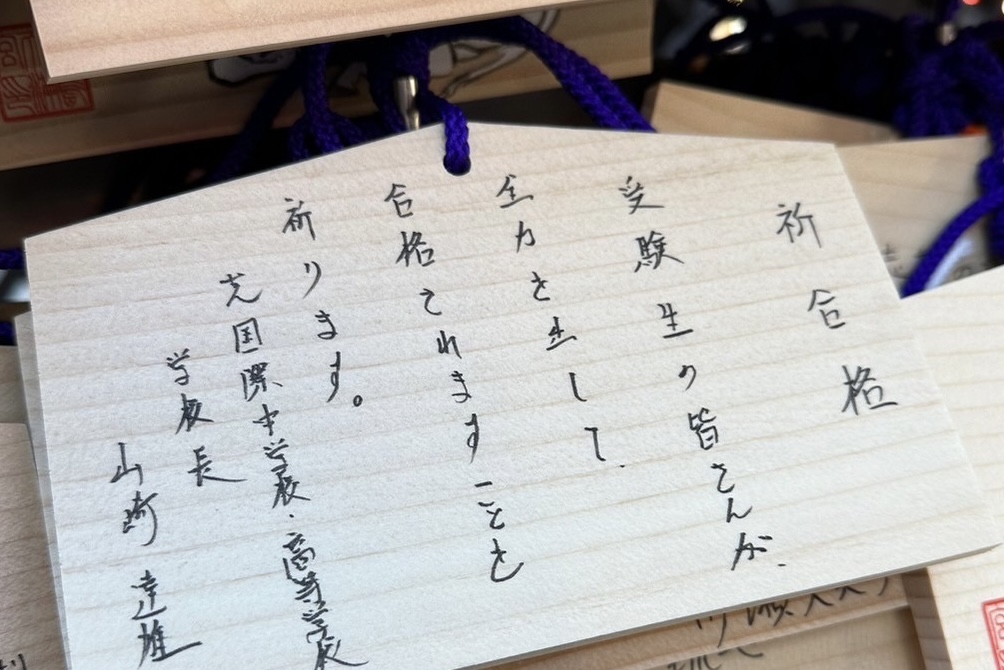 祈合格
受験生の皆さんが、
全力を出して、
合格されますことを
祈ります。
芝国際中学校・高等学校
学校長
山崎 達雄